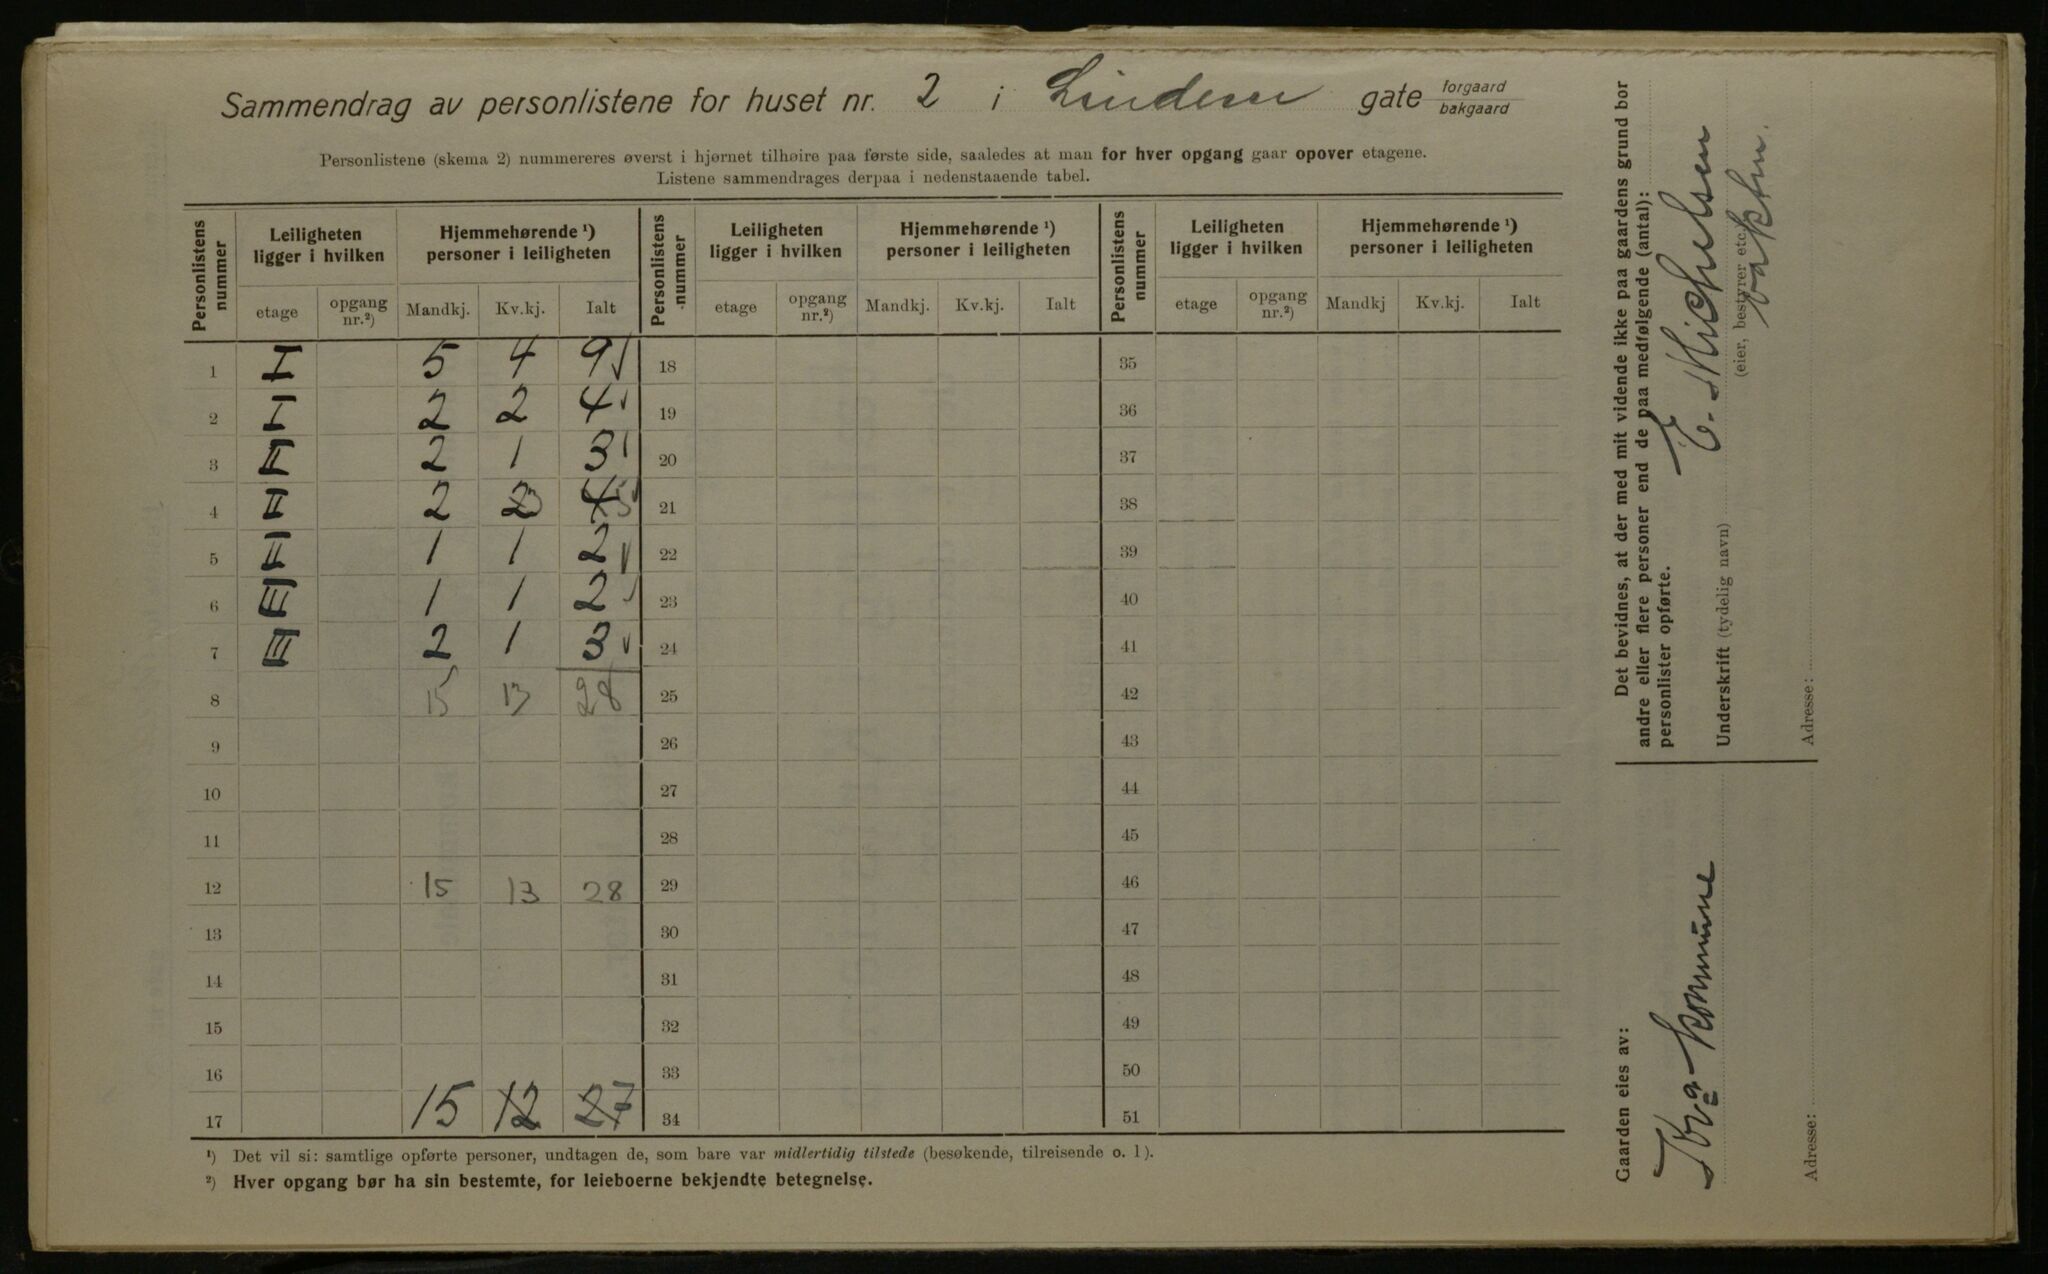 Sammendrag av personlistene for huset nr. 2 i Lindern gate forgaard bakgaard
Personlistene (skema 2) nummereres øverst i hjørnet tilhøire paa første side, saaledes at man for hver opgang gaar opover etagene.
Listene sammendrages derpaa i nedenstaaende tabel.
Personlistens nummer Leiligheten ligger i hvilken Hjemmehørende ¹) personer i leiligheten Personlistens nummer Leiligheten ligger i hvilken Hjemmehørende ¹) personer i leiligheten Personlistens nummer Leiligheten ligger i hvilken Hjemmehørende ¹) personer i leiligheten
etage opgang nr.²) Mandkj. Kv.kj. Ialt etage opgang nr.²) Mandkj. Kv.kj. Ialt etage opgang nr.²) Mandkj Kv.kj. Ialt
1 I 5 4 9 18 35
2 I 2 2 4 19 36
3 II 2 1 3 20 37
4 II 2 2 3 4 5 21 38
5 II 1 1 2 22 39
6 III 1 1 2 23 40
7 III 2 1 3 24 41
8 15 13 28 25 42
9 26 43
10 27 44
11 28 45
12 15 13 28 29 46
13 30 47
14 31 48
15 32 49
16 33 50
17 15 12 27 34 51
¹) Det vil si: samtlige opførte personer, undtagen de, som bare var midlertidig tilstede (besøkende, tilreisende o. l).
²) Hver opgang bør ha sin bestemte, for leieboerne bekjendte betegnelse.
Gaarden eies av:
Kra kommune
Adresse:
Det bevidnes, at der med mit vidende ikke paa gaardens grund bor
andre eller flere personer end de paa medfølgende (antal):
personlister opførte.
E. Michelsen
Underskrift (tydelig navn)
(eier, bestyrer etc.)
vaktm.
Adresse: